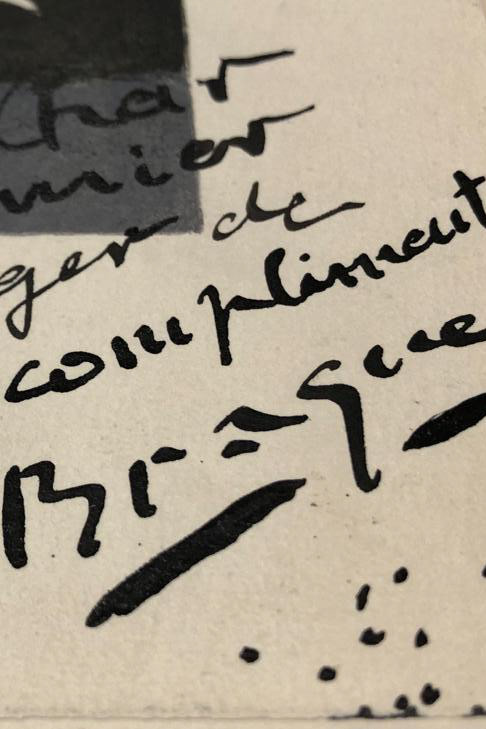 Char
mier
ger de
compliment
Braque